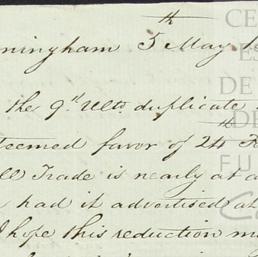 th
ningham 5 May 1
the 9th Ulto. duplicate
teemed favor of 24th
Trade is nearly at a
had it advertised at
hope this reduction
CE
ES
DE
DE
FU